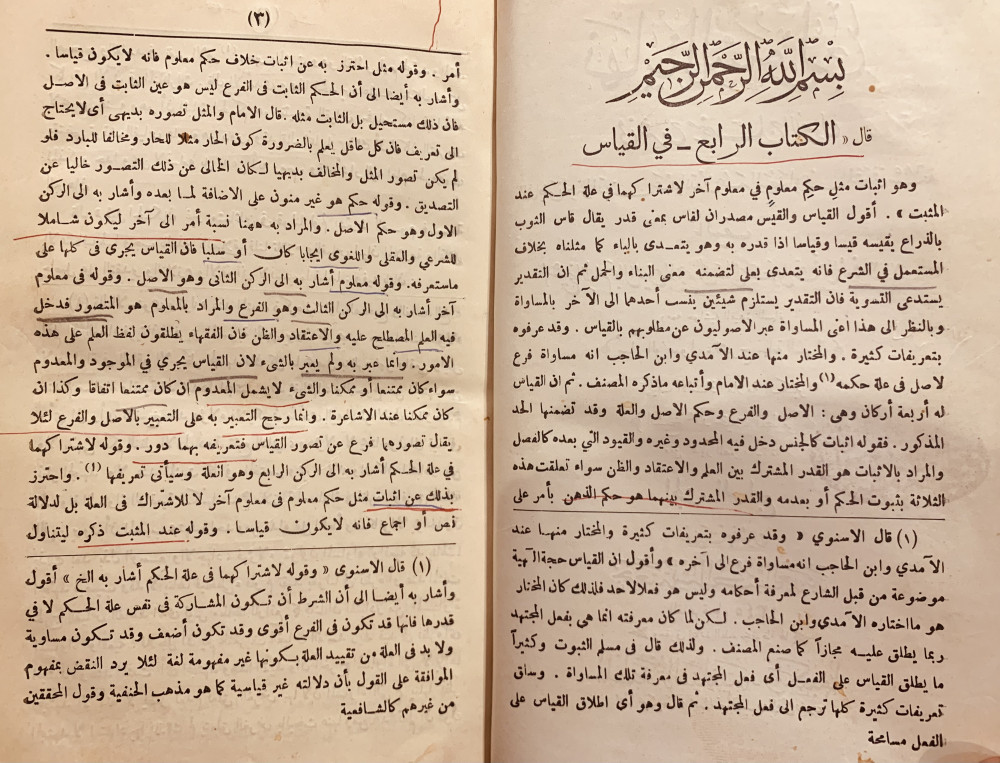 بسم الله الرحمن الرحيم
قال « الكتاب الرابع ـ في القياس
وهو اثبات مثل حكم معلوم في معلوم آخر لاشتراكهما في علة الحكم عند
المثبت » . أقول القياس والقيس مصدران لقاس بمعنى قدر يقال قاس الثوب
بالذراع يقيسه قيسا وقياسا اذا قدره به وهو يتعدى بالباء كما مثلناه بخلاف
المستعمل في الشرع فانه يتعدى بعلى لتضمنه معنى البناء والحمل ثم ان التقدير
يستدعى التسوية فان التقدير يستلزم شيئين ينسب أحدهما الى الآخر بالمساواة
وبالنظر الى هذا اعنى المساواة عبر الاصوليون عن مطلوبهم بالقياس . وقد عرفوه
بتعريفات كثيرة . والمختار منها عند الآمدي وابن الحاجب انه مساواة فرع
لاصل فى علة حكمه (١) والمختار عند الامام وأتباعه ماذكره المصنف . ثم ان القياس
له أربعة أركان وهى : الاصل والفرع وحكم الاصل والعلة وقد تضمنها الحد
المذكور . فقوله اثبات كالجنس دخل فيه المحدود وغيره والقيود التي بعده كالفصل
والمراد بالاثبات هو القدر المشترك بين العلم والاعتقاد والظن سواء تعلقت هذه
الثلاثة بثبوت الحكم أو بعدمه والقدر المشترك بينهما هو حكم الذهن بأمر على
(١) قال الاسنوي « وقد عرفوه بتعريفات كثيرة والمختار منها عند
الآمدي وابن الحاجب انه مساواة فرع الى آخره » وأقول ان القياس حجة الهية
موضوعة من قبل الشارع لمعرفة أحكامه وليس هو فعلا لاحد فلذلك كان المختار
هو مااختاره الآمدى وابن الحاجب . لكن لما كان معرفته انما هى بفعل المجتهد
ربما يطلق عليه مجازاً كما صنع المصنف . ولذلك قال في مسلم الثبوت وكثيراً
ما يطلق القياس على الفعل أى فعل المجتهد فى معرفة تلك المساواة . وساق
تعريفات كثيرة كلها ترجع الى فعل المجتهد . ثم قال وهو أى اطلاق القياس على
الفعل مسامحة
(٣)
أمر . وقوله مثل احترز به عن اثبات خلاف حكم معلوم فانه لايكون قياسا .
وأشار به أيضا الى أن الحكم الثابت فى الفرع ليس هو عين الثابت فى الاصل
فان ذلك مستحيل بل الثابت مثله . قال الامام والمثل تصوره بديهى أى لايحتاج
الى تعريف فان كل عاقل يعلم بالضرورة كون الحار مثلا للحار ومخالفا للبارد فلو
لم يكن تصور المثل والمخالف بديهيا لكان الخالى عن ذلك التصور خاليا عن
التصديق . وقوله حكم هو غير منون على الاضافة لما بعده وأشار به الى الركن
الاول وهو حكم الاصل . والمراد به ههنا نسبة أمر الى آخر ليكون شاملا
للشرعي والعقلى واللغوى ايجابا كان أو سلبا فان القياس يجرى فى كلها على
ماستعرفه . وقوله معلوم أشار به الى الركن الثانى وهو الاصل . وقوله فى معلوم
آخر أشار به الى الركن الثالث وهو الفرع والمراد بالمعلوم هو المتصور فدخل
فيه العلم المصطلح عليه والاعتقاد والظن فان الفقهاء يطلقون لفظ العلم على هذه
الامور . وانما عبر به ولم يعبر بالشىء لان القياس يجري في الموجود والمعدوم
سواء كان ممتنعا أو ممكنا والشىء لايشمل المعدوم ان كان ممتنعا اتفاقا وكذا ان
كان ممكنا عند الاشاعرة . وانما رجح التعبير به على التعبير بالاصل والفرع لئلا
يقال تصورهما فرع عن تصور القياس فتعريفه بهما دور . وقوله لاشتراكهما
فى علة الحكم أشار به الى الركن الرابع وهو العلة وسيأتى تعريفها (١) . واحترز
بذلك عن اثبات مثل حكم معلوم فى معلوم آخر لا للاشتراك فى العلة بل لدلالة
نص أو اجماع فانه لايكون قياسا . وقوله عند المثبت ذكره ليتناول
(١) قال الاسنوى « وقوله لاشتراكهما فى علة الحكم أشار به الخ » أقول
وأشار به أيضا الى أن الشرط أن تكون المشاركة فى نفس علة الحكم لا في
قدرها فانها قد تكون فى الفرع أقوى وقد تكون أضعف وقد تكون مساوية
ولا بد فى العلة من تقييد العلة بكونها غير مفهومة لغة لئلا يرد النقض بمفهوم
الموافقة على القول بأن دلالته غير قياسية كما هو مذهب الحنفية وقول المحققين
من غيرهم كالشافعية